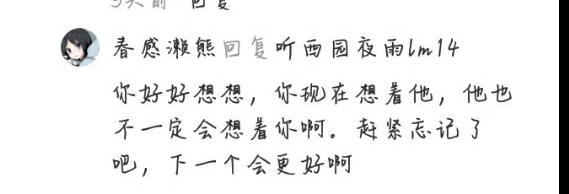 春感濑熊回复听西园夜雨lm14
你好好想想，你现在想着他，他也
不一定会想着你啊。赶紧忘记了
吧，下一个会更好啊